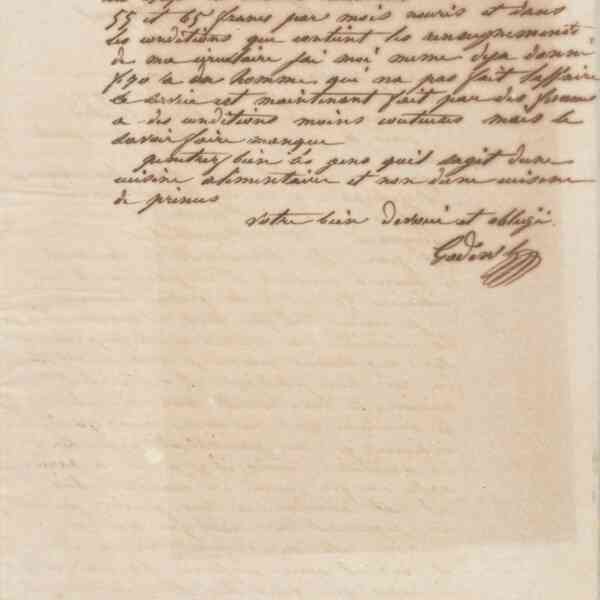 55 et 65 francs par mois nouris et dans
les conditions que contient les renseignements
de ma circulaire j'ai moi meme deja donné
f. 70 à un homme qui n'a pas fait laffaire
le service est maintenant fait par des femmes
a des conditions moins couteuses mais le
savoir faire manque
penetrez bien les gens quil sagit d'une
cuisine alimentaire et non d'une cuisine
de princes
votre bien devoué et obligé
Godin